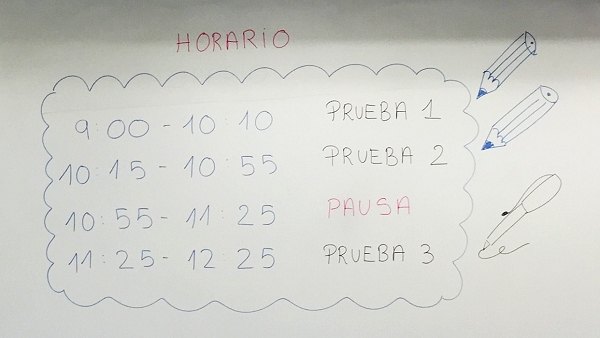 HORARIO
9:00 - 10:10 PRUEBA 1
10:15 - 10:55 PRUEBA 2
10:55 - 11:25 PAUSA
11:25 - 12:25 PRUEBA 3